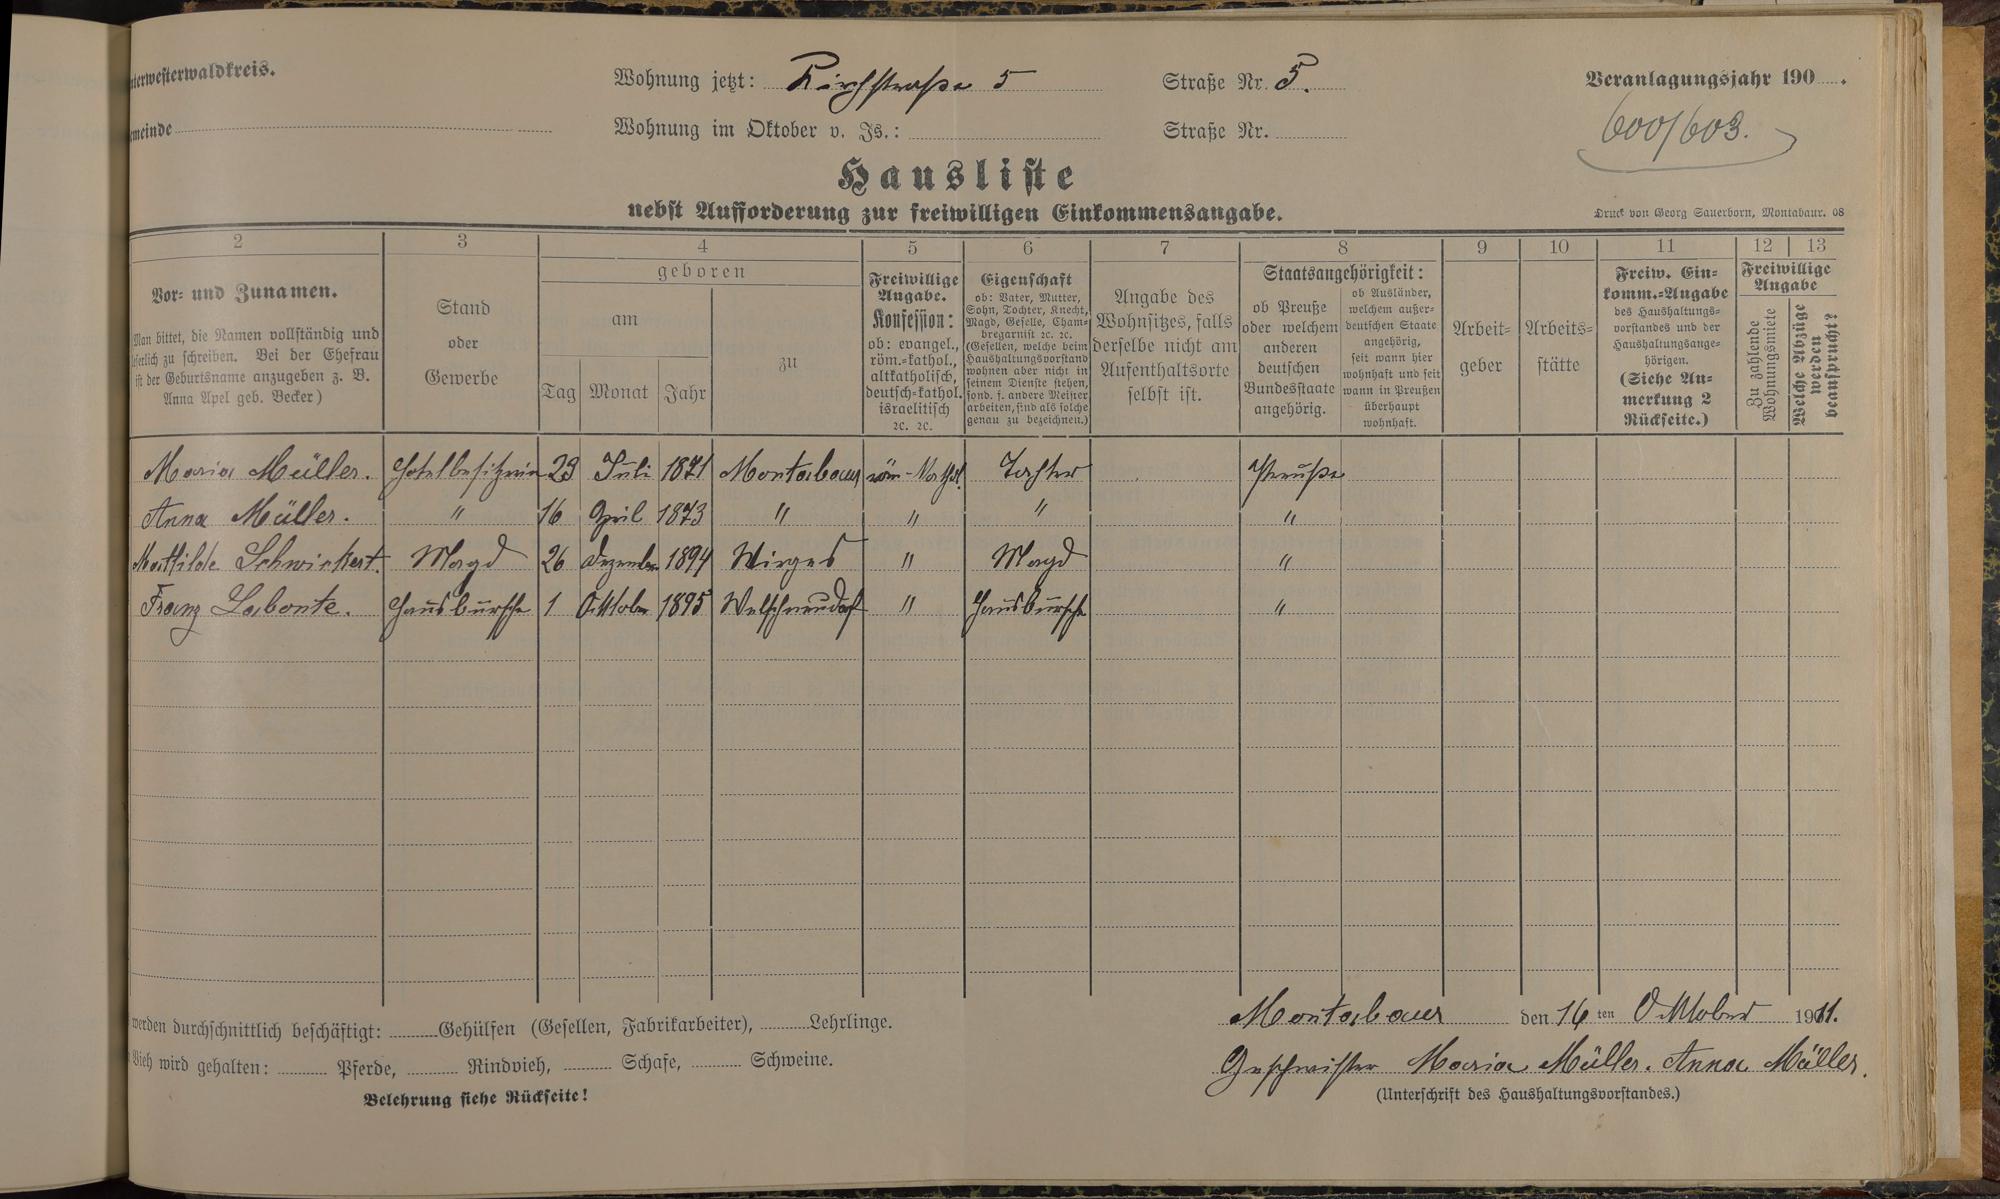 nterwesterwaldkreis.
Wohnung jetzt: Kirchstraße 5 Straße Nr. 5.
Veranlagungsjahr 190 .
emeinde
Wohnung im Oktober v. Js.: Straße Nr.
600/603.
Hausliste
nebst Aufforderung zur freiwilligen Einkommensangabe.
Druck von Georg Sauerborn, Montabaur. 08
2 3 4 5 6 7 8 9 10 11 12 13
Vor- und Zunamen.
Man bittet, die Namen vollständig und
leserlich zu schreiben. Bei der Ehefrau
ist der Geburtsname anzugeben z. B.
Anna Apel geb. Becker)
Stand
oder
Gewerbe
geboren
am
Tag Monat Jahr
zu
Freiwillige
Angabe.
Konfession:
ob: evangel.,
röm.-kathol.,
altkatholisch,
deutsch-kathol.
israelitisch
ꝛc. ꝛc.
Eigenschaft
ob: Vater, Mutter,
Sohn, Tochter, Knecht,
Magd, Geselle, Cham-
bregarnist ꝛc. ꝛc.
(Gesellen, welche beim
Haushaltungsvorstand
wohnen aber nicht in
seinem Dienste stehen,
sond. f. andere Meister
arbeiten, sind als solche
genau zu bezeichnen.)
Angabe des
Wohnsitzes, falls
derselbe nicht am
Aufenthaltsorte
selbst ist.
Staatsangehörigkeit:
ob Preuße
oder welchem
anderen
deutschen
Bundesstaate
angehörig.
ob Ausländer,
welchem außer-
deutschen Staate
angehörig,
seit wann hier
wohnhaft und seit
wann in Preußen
überhaupt
wohnhaft.
Arbeit-
geber
Arbeits-
stätte
Freiw. Ein-
komm.-Angabe
des Haushaltungs-
vorstandes und der
Haushaltungsange-
hörigen.
(Siehe An-
merkung 2
Rückseite.)
Freiwillige
Angabe
Zu zahlende
Wohnungsmiete
Welche Abzüge
werden
beansprucht?
Maria Müller. Hotelbesitzerin 23 Juli 1871 Montabaur röm-Kathol. Tochter Preuße
Anna Müller. " 16 April 1873 " " " "
Mathilde Schwickert. Magd 26 Dezember 1894 Wirges " Magd "
Franz Labonte. Hausbursche 1 Oktober 1895 Welschneudorf " Hausbursche "
werden durchschnittlich beschäftigt: Gehülfen (Gesellen, Fabrikarbeiter), Lehrlinge.
Montabaur den 16 ten Oktober 1911.
Vieh wird gehalten: Pferde, Rindvieh, Schafe, Schweine.
Geschwister Maria Müller. Anna Müller.
(Unterschrift des Haushaltungsvorstandes.)
Belehrung siehe Rückseite!